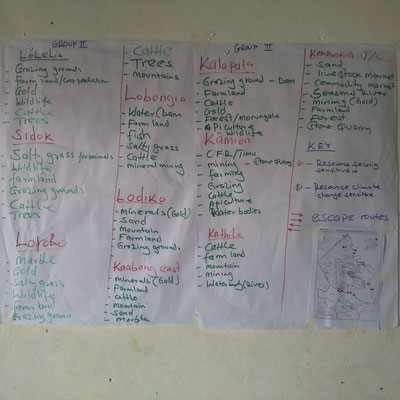 GROUP II
Lolelia
- Grazing ground
- Farm land/crop production
- Gold
- Wildlife
- Cattle
- Trees
Sidok
- Salty grass for animals
- Wildlife
- farmland
- Grazing grounds
- Cattle
- Trees
- marble
- Gold
- Salty grass
- Wildlife
- farmland
- Grazing ground
- Cattle
- Trees
- mountains
Lobongia
- Water (Dam)
- Farm land
- fish
- Salty grass
- Cattle
- mineral mining
Lodiko
- minerals (Gold)
- Sand
- mountain
- Farmland
- Grazing grounds
Kaabong east
- minerals (Gold)
- Farmland
- cattle
- mountain
- sand
- marble
GROUP II
Kalapata
- Grazing ground - Dam
- Farmland
- Cattle
- Gold
- Forest/morungole
- Apiculture
- Wildlife
Kamion
- C.F.R/Timu
- mining - Stone quarry
- farming
- Grazing
- Cattle
- Apiculture
- Water bodies
Kathile
- Cattle
- farm land
- mountain
- mining
- Water body (River)
KAABONG T/C
- Sand
- livestock market
- Commodity market
- Seasonal River
- mining (Gold)
- Farmland
- Forest
- Stone Quarry
KEY
Resource
sensitive
Resource climate
change sensitive
escape routes